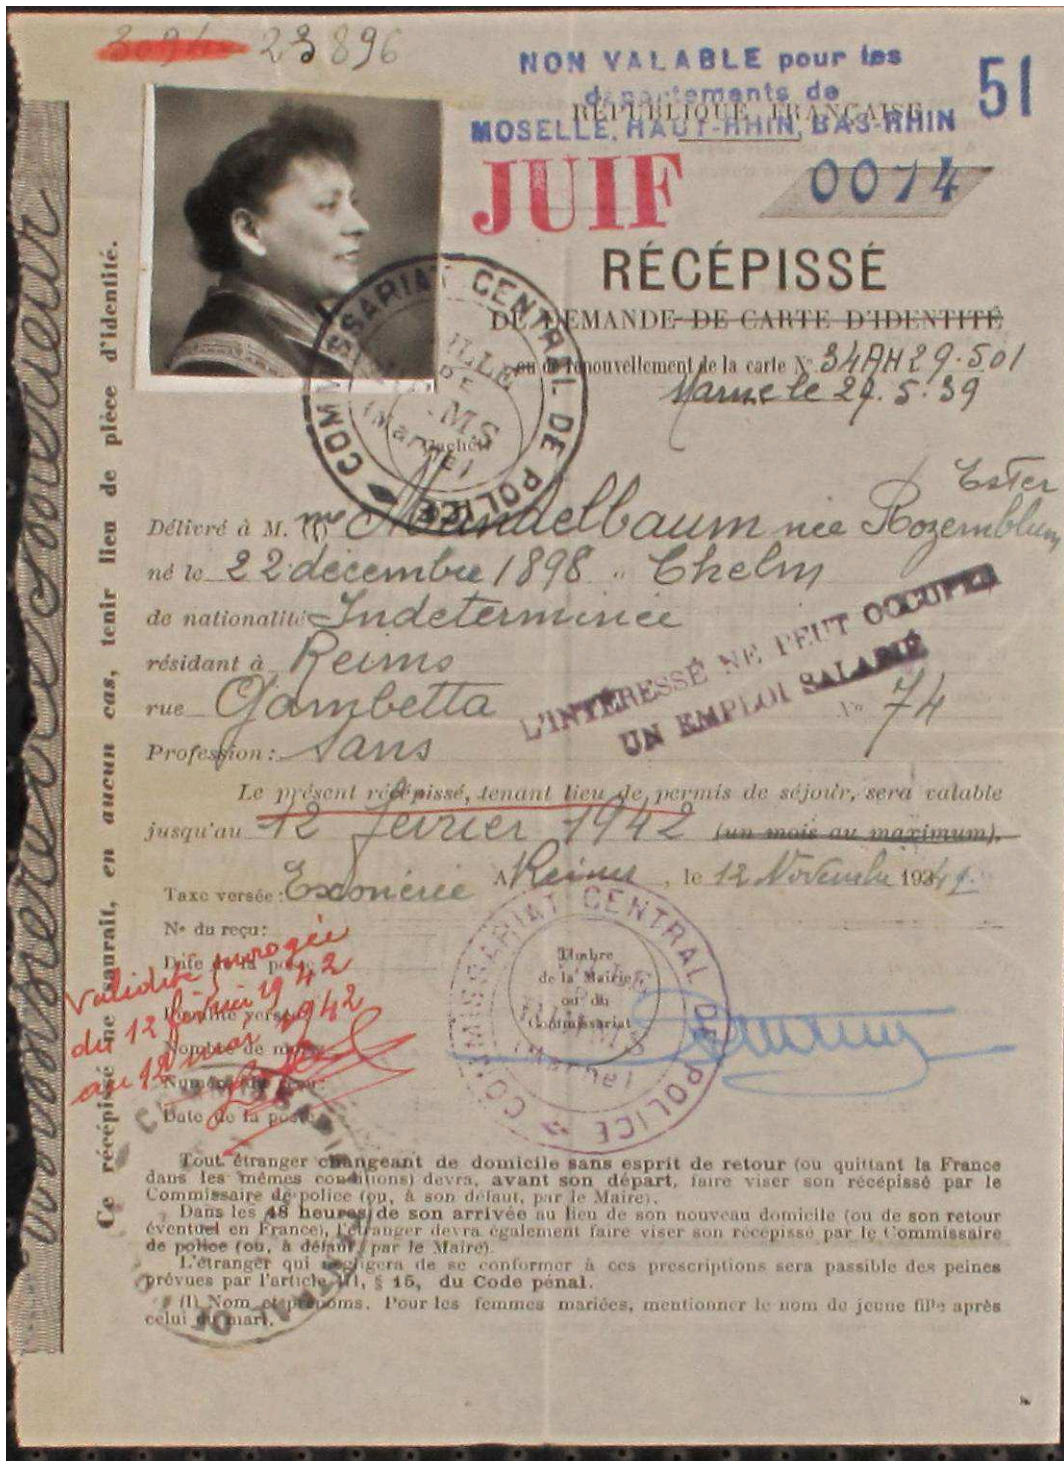 23896
NON VALABLE pour les
départements de
MOSELLE, HAUT-RHIN, BAS-RHIN
51
RÉPUBLIQUE FRANÇAISE
JUIF
0074
RÉCÉPISSÉ
DE DEMANDE DE CARTE D'IDENTITÉ
ou de renouvellement de la carte N° 34AH29.501
Marne le 29.5.39
COMMISSARIAT CENTRAL DE POLICE
VILLE DE
(Marne)
Cachet
Ester
Délivré à M. (1) me Mandelbaum née Rozemblum
né le 22 décembre 1898 " Chelm
de nationalité Indeterminée
résidant à Reims
rue Gambetta N° 74
Profession: sans
L'INTÉRESSÉ NE PEUT OCCUPER
UN EMPLOI SALARIÉ
Le présent récépissé, tenant lieu de permis de séjour, sera valable
jusqu'au 12 février 1942 (un mois au maximum).
Taxe versée: Exonérée A Reims, le 12 Novembre 1941.
N° du reçu:
Date de la poste
Nombre de
Date de la poste
Validité prorogée
du 12 février 1942
au 12 mai 1942
Timbre
de la Mairie
ou du
Commissariat
COMMISSARIAT CENTRAL DE POLICE
(Marne)
Tout étranger changeant de domicile sans esprit de retour (ou quittant la France
dans les mêmes conditions) devra, avant son départ, faire viser son récépissé par le
Commissaire de police (ou, à son défaut, par le Maire).
Dans les 48 heures de son arrivée au lieu de son nouveau domicile (ou de son retour
éventuel en France), l'étranger devra également faire viser son récépissé par le Commissaire
de police (ou, à défaut, par le Maire).
L'étranger qui négligera de se conformer à ces prescriptions sera passible des peines
prévues par l'article 471, § 15, du Code pénal.
(1) Nom et prénoms. Pour les femmes mariées, mentionner le nom de jeune fille après
celui du mari.
Ce récépissé ne saurait, en aucun cas, tenir lieu de pièce d'identité.